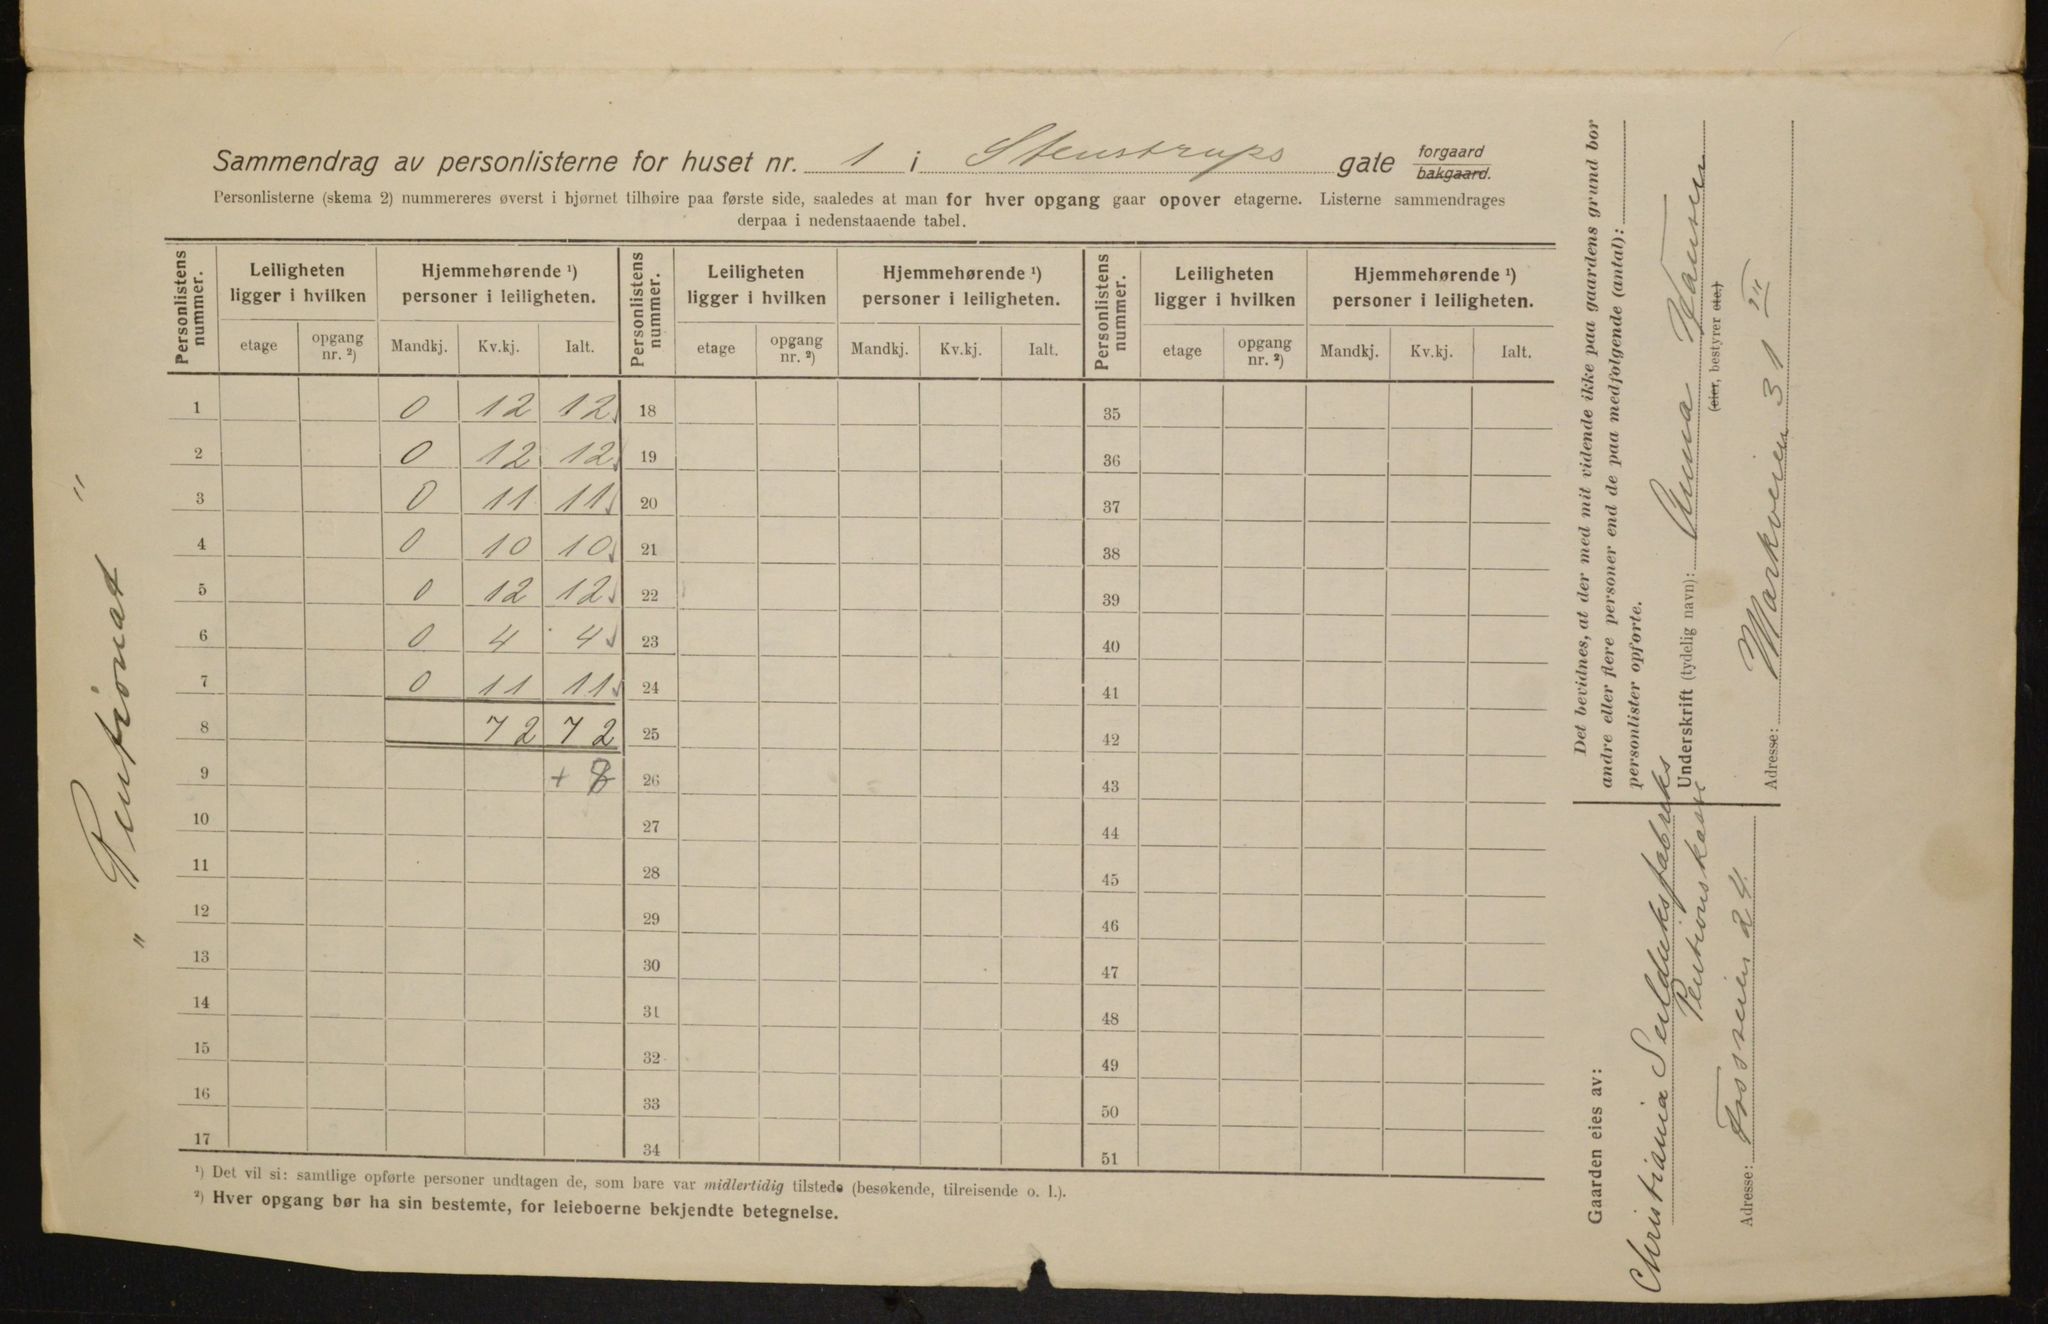 Sammendrag av personlisterne for huset nr. 1 i Stenstrups gate forgaard bakgaard.
Personlisterne (skema 2) nummereres øverst i hjørnet tilhøire paa første side, saaledes at man for hver opgang gaar opover etagerne. Listerne sammendrages
derpaa i nedenstaaende tabel.
Personlistens nummer. Leiligheten ligger i hvilken Hjemmehørende ¹) personer i leiligheten. Personlistens nummer. Leiligheten ligger i hvilken Hjemmehørende ¹) personer i leiligheten. Personlistens nummer. Leiligheten ligger i hvilken Hjemmehørende ¹) personer i leiligheten.
etage opgang nr. ²) Mandkj. Kv.kj. Ialt. etage opgang nr. ²) Mandkj. Kv.kj. Ialt. etage opgang nr. ²) Mandkj. Kv.kj. Ialt.
1 0 12 12 18 35
2 0 12 12 19 36
3 0 11 11 20 37
4 0 10 10 21 38
5 0 12 12 22 39
6 0 4 4 23 40
7 0 11 11 24 41
8 72 72 25 42
9 + 26 43
10 27 44
11 28 45
12 29 46
13 30 47
14 31 48
15 32 49
16 33 50
17 34 51
¹) Det vil si: samtlige opførte personer undtagen de, som bare var midlertidig tilstede (besøkende, tilreisende o. l.).
²) Hver opgang bør ha sin bestemte, for leieboerne bekjendte betegnelse.
" Pentionat "
Det bevidnes, at der med mit vidende ikke paa gaardens grund bor
andre eller flere personer end de paa medfølgende (antal):
personlister opførte.
Underskrift (tydelig navn): Anna Hansen
(eier, bestyrer etc.)
Adresse: Markveien 31 III
Gaarden eies av:
Christiania Seildugsfabriks
Pentionskasse
Adresse: Fossveien 24.